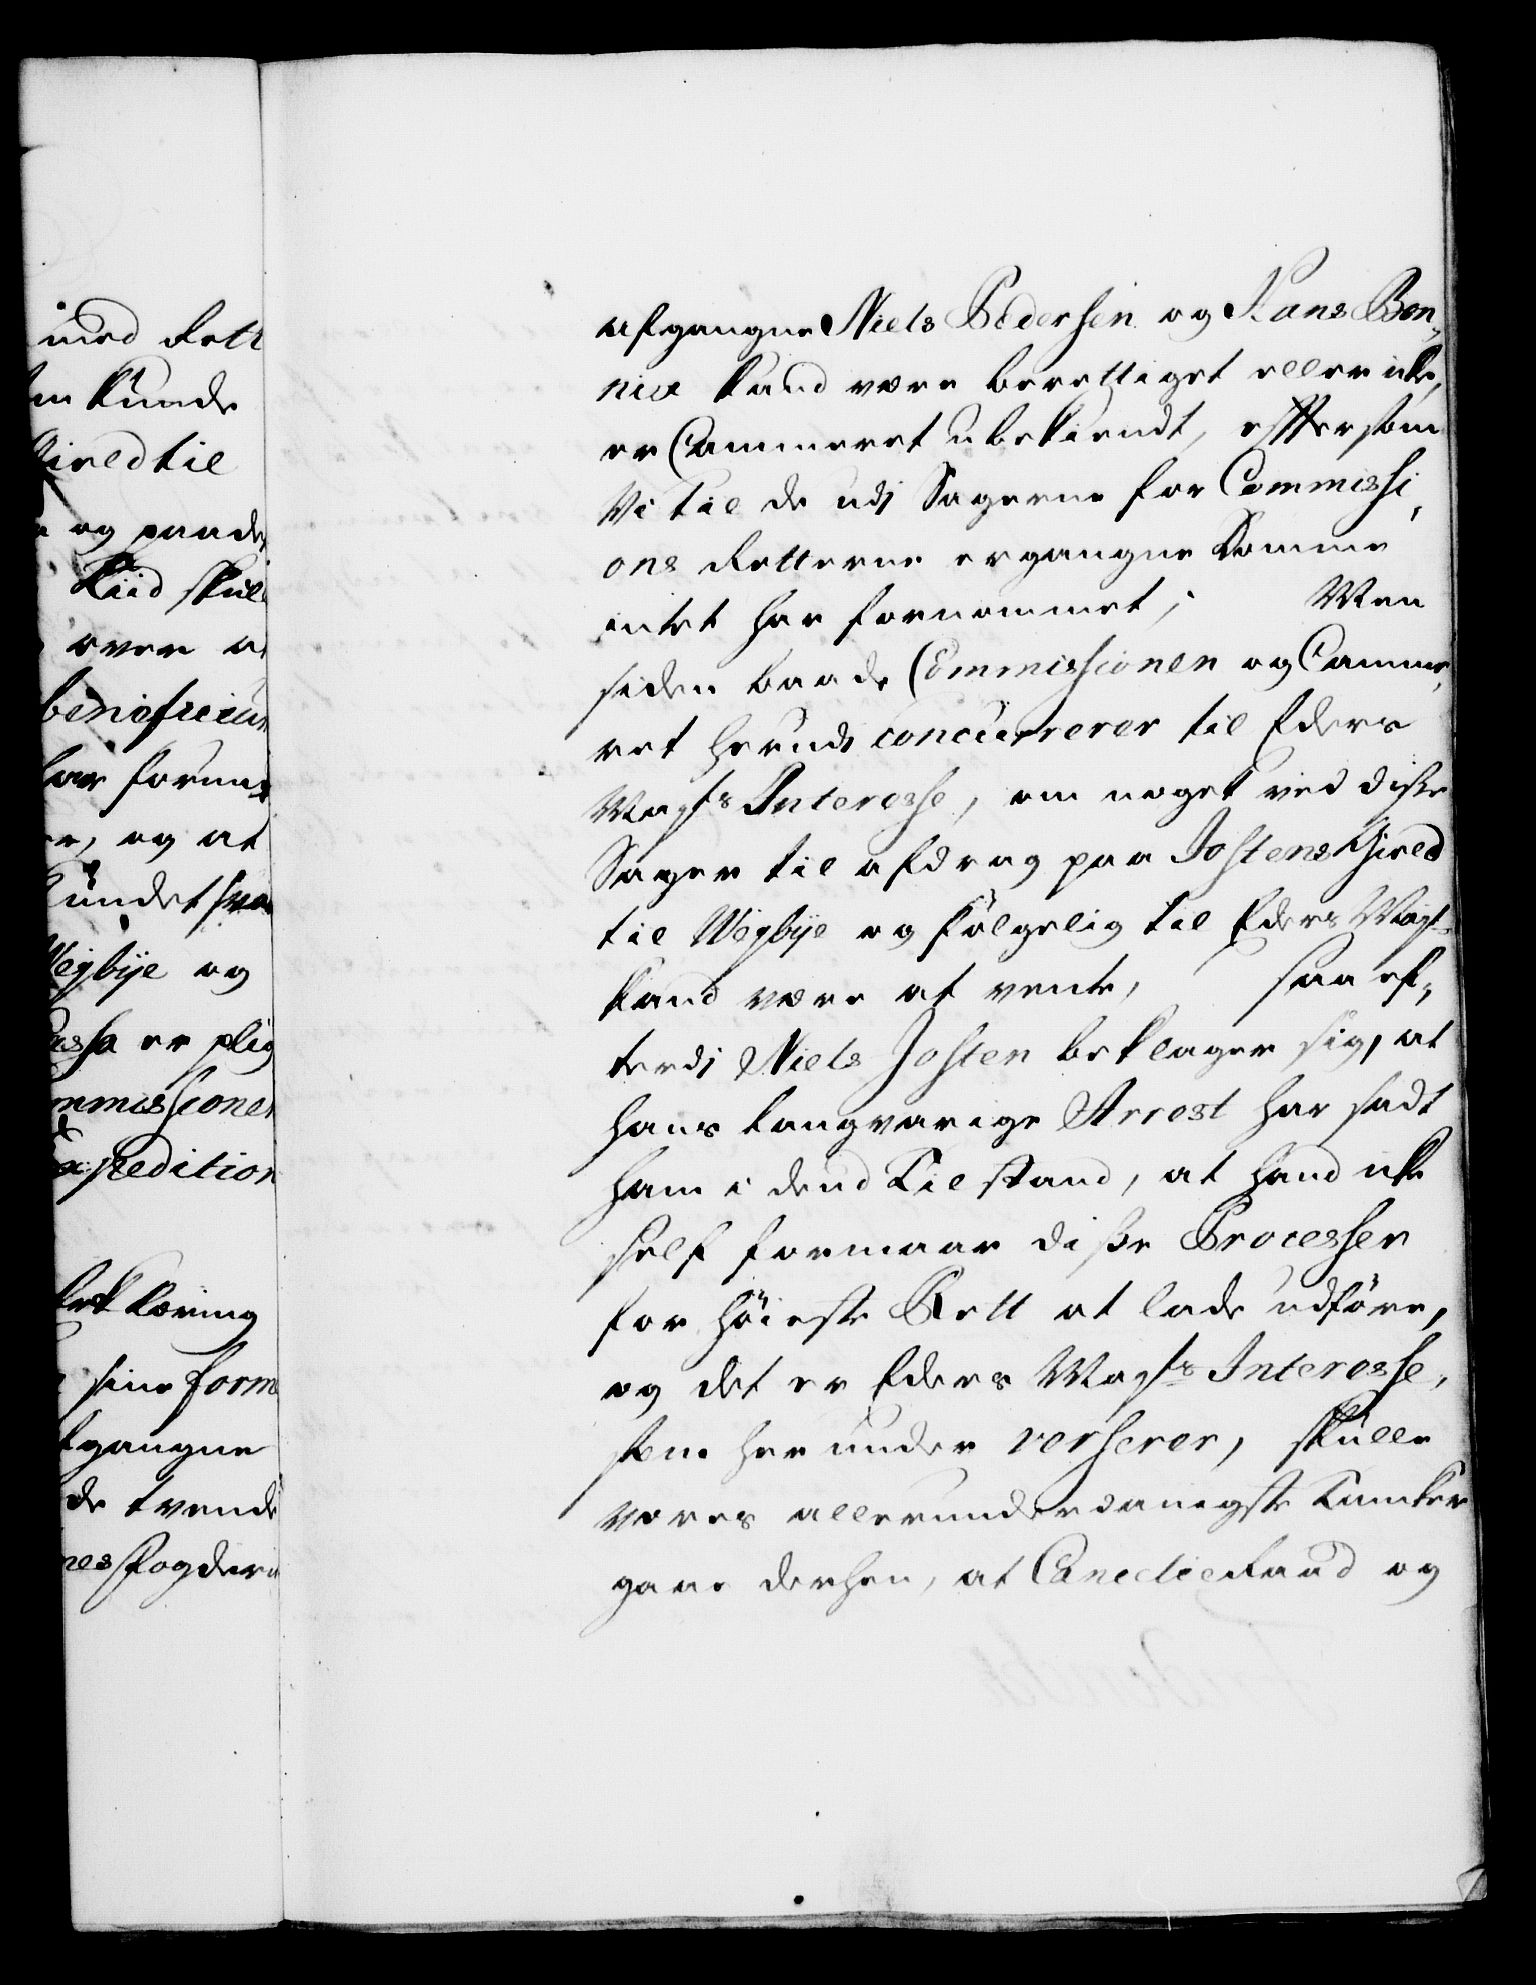 med Rett
kunde
Gield til
og paade
Tiid skul
over a
beneficium
har fornum
er, og at
kundet sva
Weybye og
Cassa er plig
ommissionen
Expedition
Erklæring
sine form
gangne
de tvende
nes Fogderi
afgangne Niels Pedersen og Hans Bon,
nix kand være berettiget eller icke,
er Cammeret ubekiendt, effter som
Vi til de udi Sagerne for Commissi,
ons Retterne ergangne Domme
intet har fornommet; Men
siden baade Commissionen og Camme,
ret herudi concurrerer til Eders
Mayts Interesse, om noget ved disse
Sager til afdrag paa Jostens Gield
til Weybye og følgelig til Eders Mayt
kand være at vente, saa ef,
terdi Niels Josten beklager sig, at
hans langvarige Arrest har sadt
ham i dend Tilstand, at hand icke
self formaar disse Processer
for Høieste Rett at lade udføre,
og det er Eders Mayts Interesse,
som her under verserer, skulle
vores allerunderdanigste Tancker
gaae derhen, at Cancelieraad og